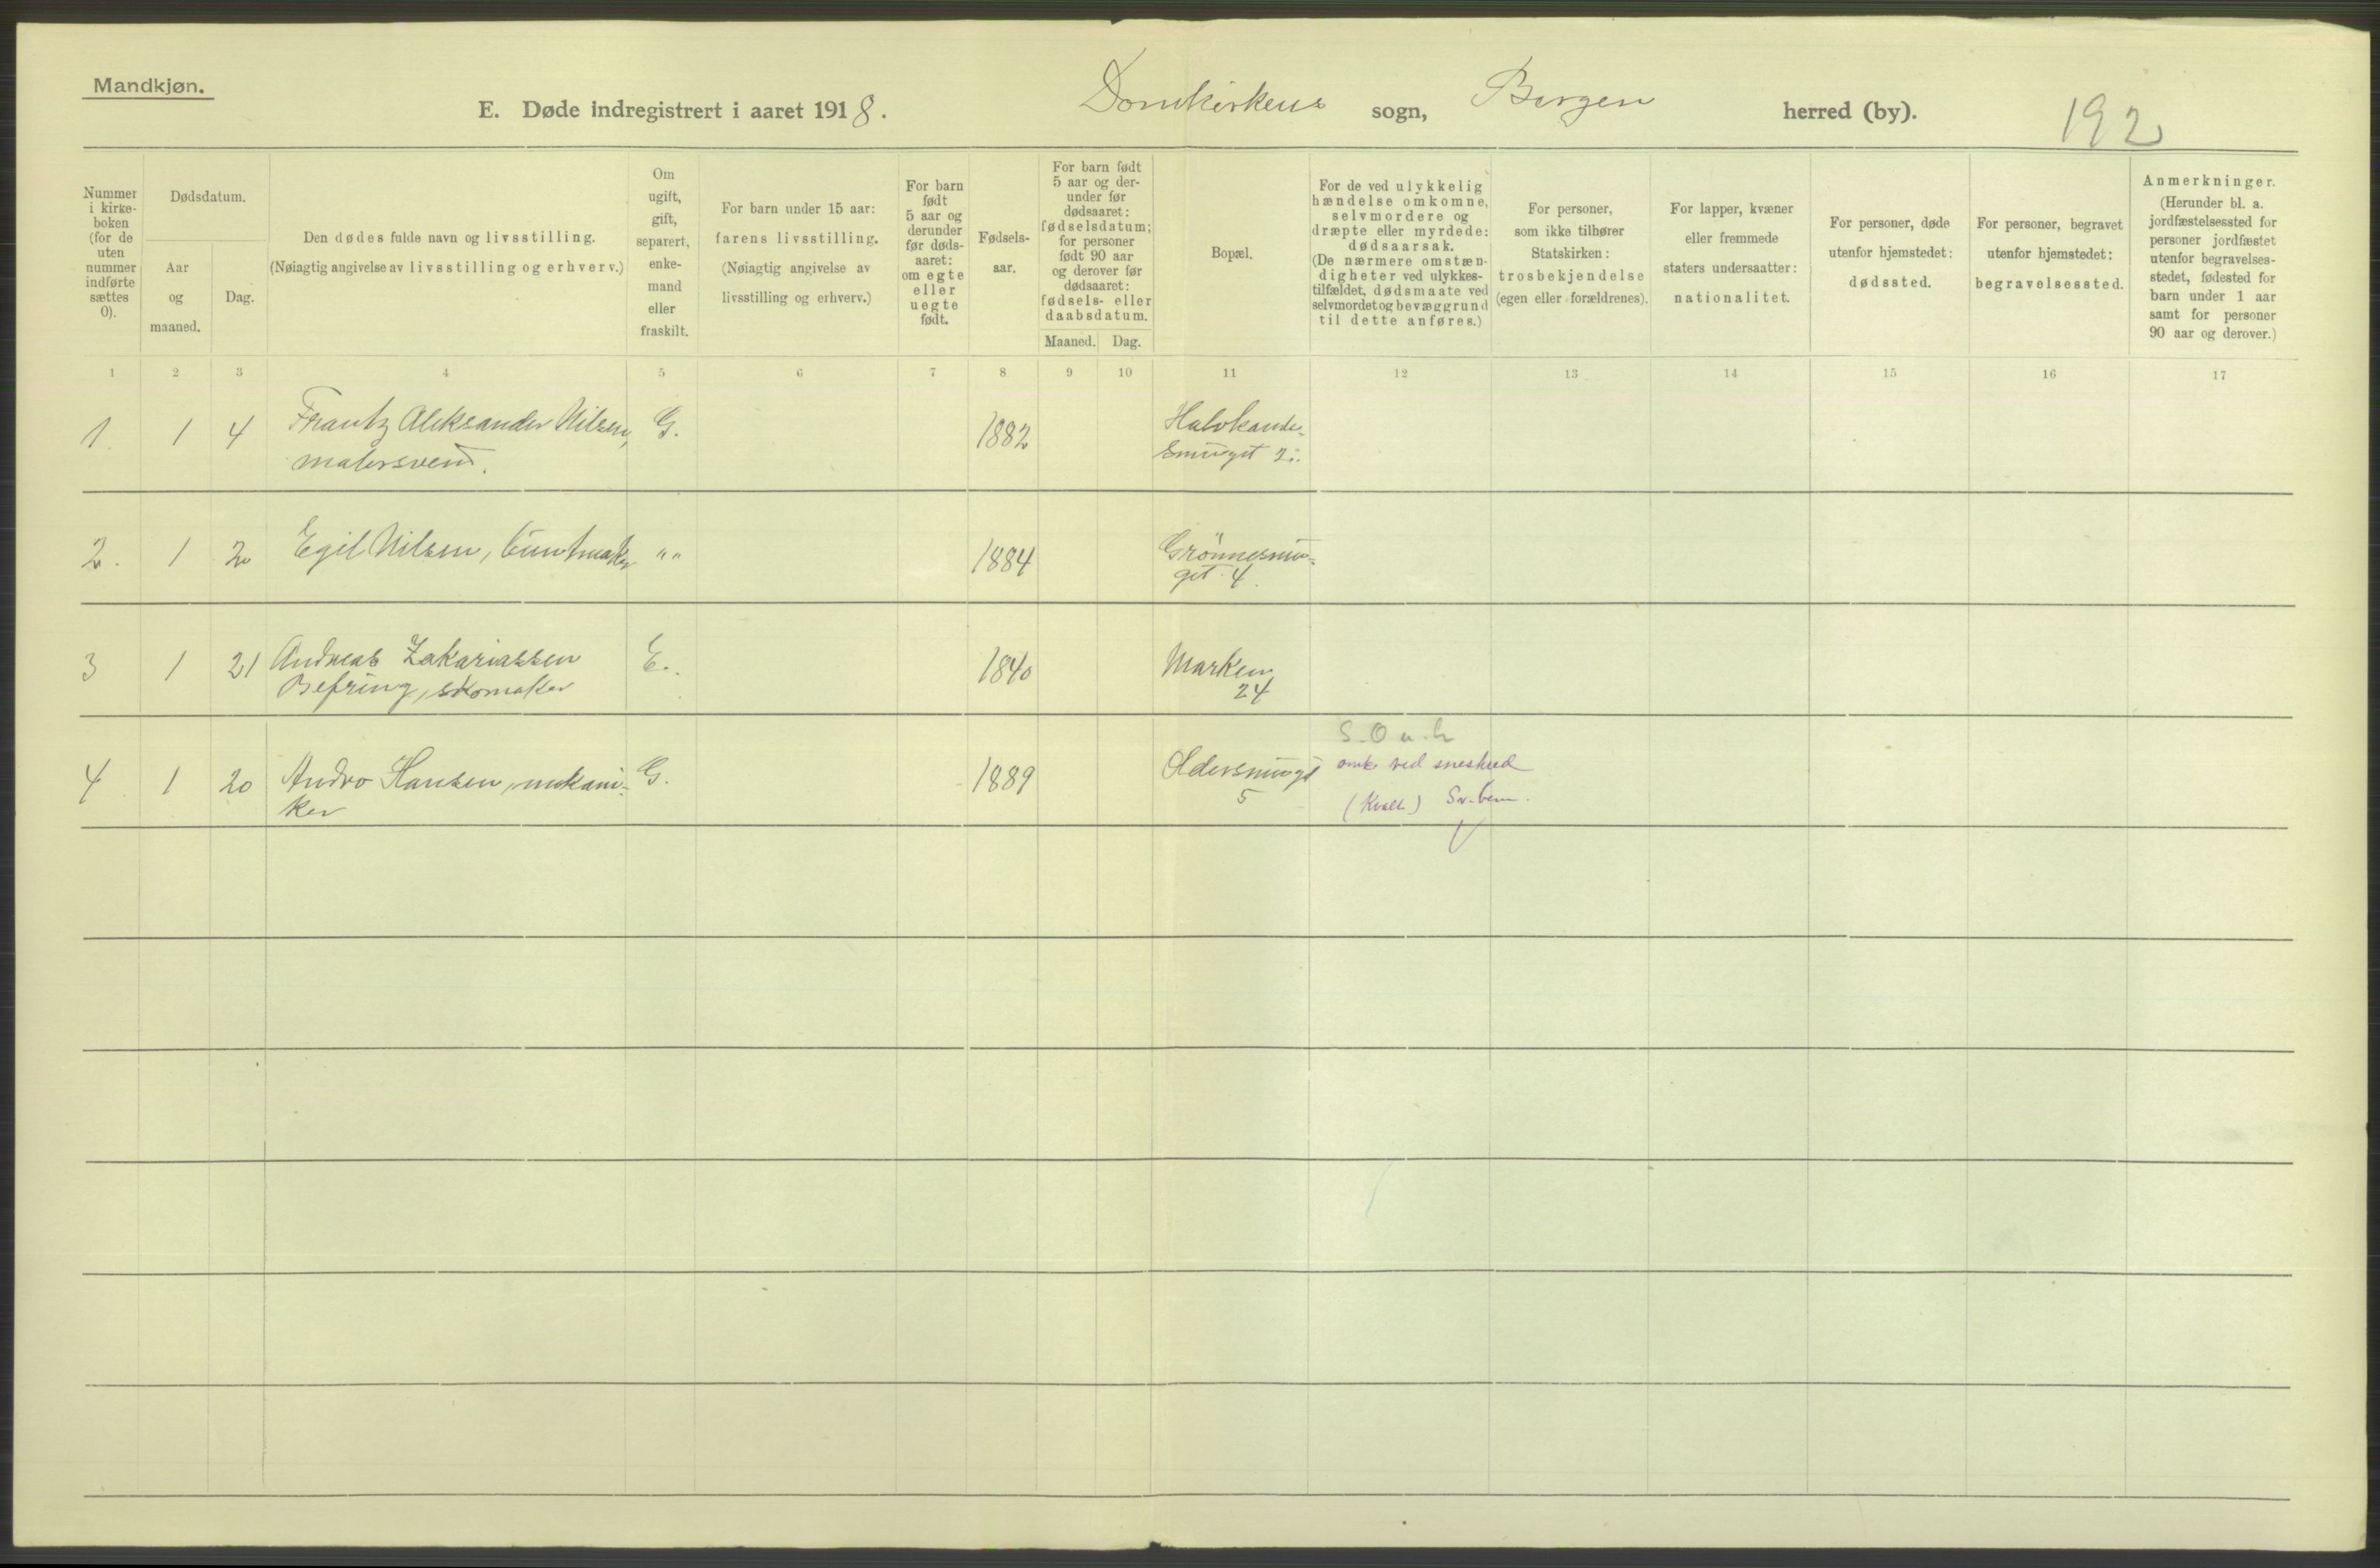 Mandkjøn.
E. Døde indregistrert i aaret 1918. Domkirkens sogn, Bergen herred (by). 192
Nummer i kirke-boken (for de uten nummer indførte sættes 0).
Dødsdatum.
Aar og maaned.
Dag.
Den dødes fulde navn og livsstilling.
(Nøiagtig angivelse av livsstilling og erhverv.)
Om ugift, gift, separert, enke-mand eller fraskilt.
For barn under 15 aar: farens livsstilling. (Nøiagtig angivelse av livsstilling og erhverv.)
For barn født 5 aar og derunder før døds-aaret: om egte eller uegte født.
Fødsels-aar.
For barn født 5 aar og der-under før dødsaaret: fødselsdatum; for personer født 90 aar og derover før dødsaaret: fødsels- eller daabsdatum.
Maaned. Dag.
Bopæl.
For de ved ulykkelig hændelse omkomne, selvmordere og dræpte eller myrdede: dødsaarsak. (De nærmere omstæn-digheter ved ulykkes-tilfældet, dødsmaate ved selvmordet og bevæggrund til dette anføres.)
For personer, som ikke tilhører Statskirken: trosbekjendelse (egen eller forældrenes).
For lapper, kvæner eller fremmede staters undersaatter: nationalitet.
For personer, døde utenfor hjemstedet: dødssted.
For personer, begravet utenfor hjemstedet: begravelsessted.
Anmerkninger. (Herunder bl. a. jordfæstelsessted for personer jordfæstet utenfor begravelses-stedet, fødested for barn under 1 aar samt for personer 90 aar og derover.)
1 2 3 4 5 6 7 8 9 10 11 12 13 14 15 16 17
1 1 4 Frantz Aleksander Nilsen, G. 1882 Halvkande-
malersvend. smuget 2.
2. 1 2 Egil Nilsen, buntmaker "" 1884 Grönnesmu-
get 4.
3 1 21 Andreas Zakariassen E. 1840 Marken
Befring, skomaker 24
4 1 20 Andro Hansen, mekani- G. 1889 Oldersmuget omk ved sneskred
ker 5 (Kvalt)